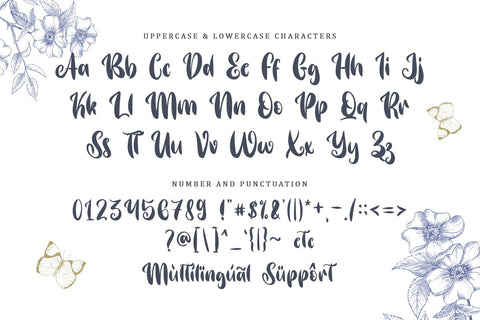 UPPERCASE & LOWERCASE CHARACTERS
Aa Bb Cc Dd Ee Ff Gg Hh Ii Jj
Kk Ll Mm Nn Oo Pp Qq Rr
Ss Tt Uu Vv Ww Xx Yy Zz
NUMBER AND PUNCTUATION
0123456789 !"#$%&'()*+,-./:;<=>
?@[\]^_`{|}~ etc
Mùltilingúál Süppôrt